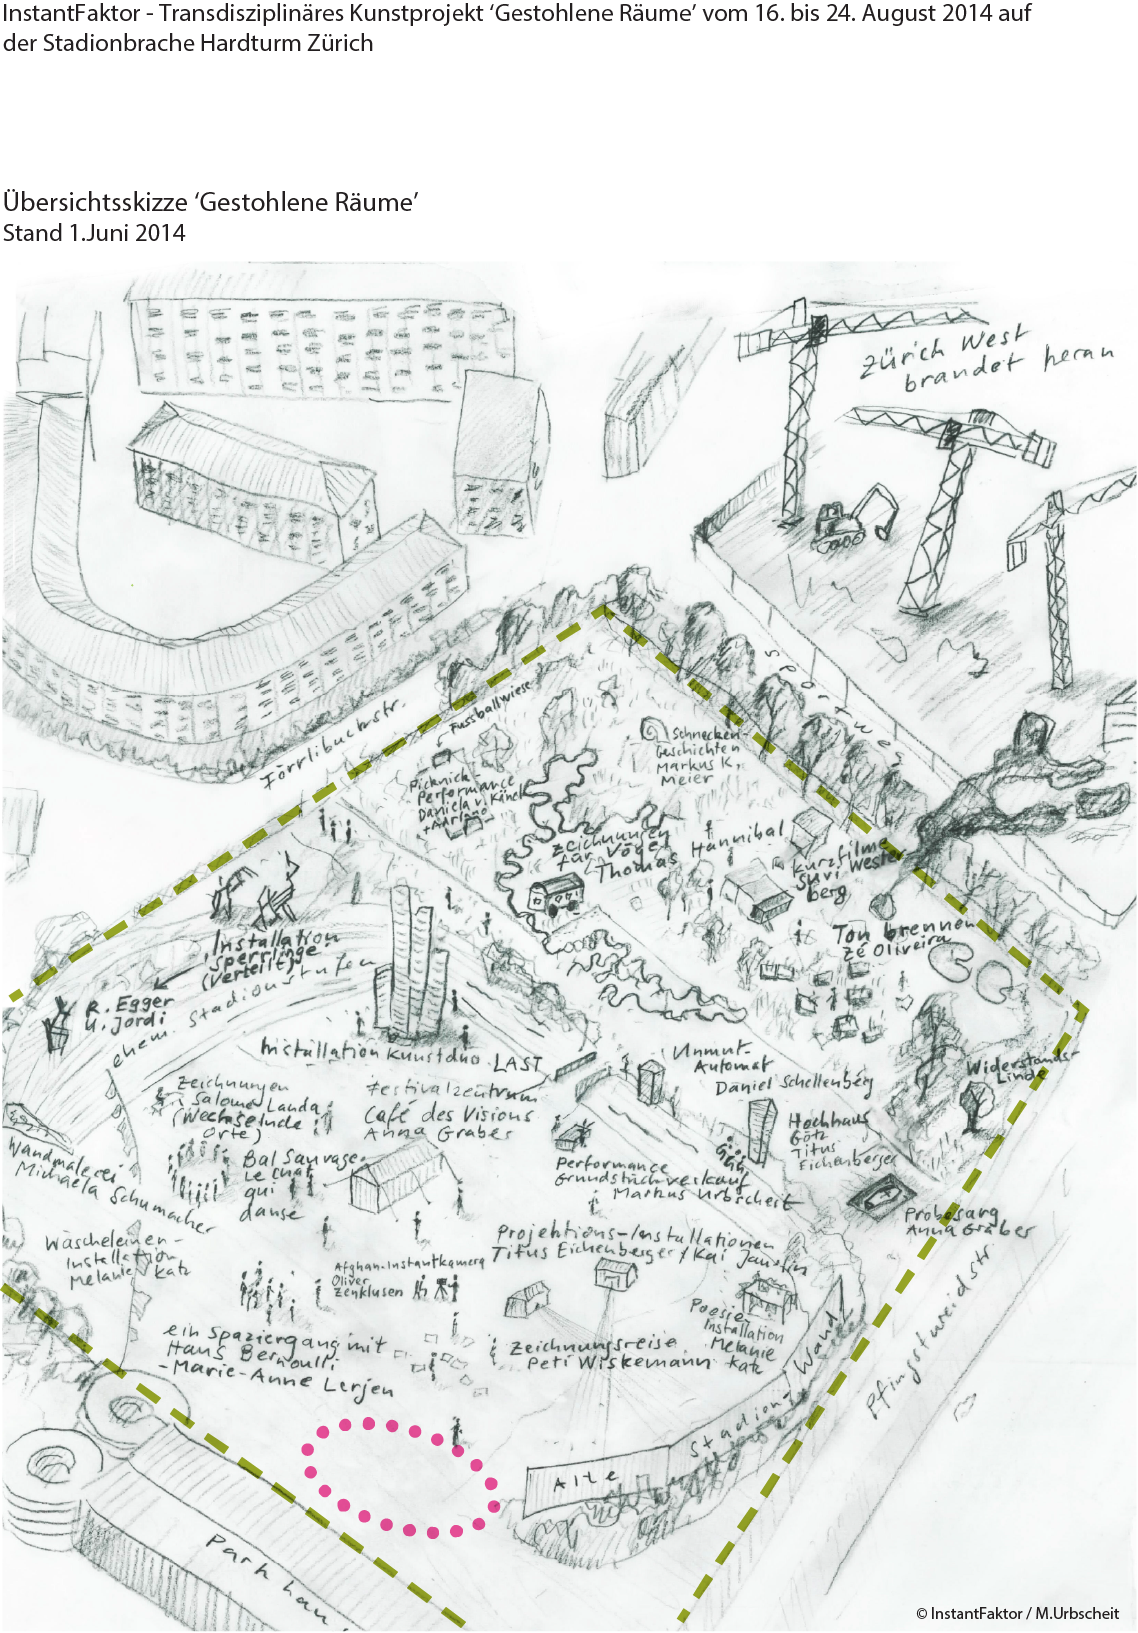 InstantFaktor - Transdisziplinäres Kunstprojekt ‘Gestohlene Räume’ vom 16. bis 24. August 2014 auf
der Stadionbrache Hardturm Zürich
Übersichtsskizze ‘Gestohlene Räume’
Stand 1.Juni 2014
Zürich West
brandet heran
Sportweg
Förrlibuckstr.
Fussballwiese
Schnecken-
Geschichten
Markus K.
Meier
Picknick-
Performance
Daniela v.
Zeichnungen
für Vögel
Thomas
Hannibal
Kurzfilme
Suvi Wester
berg
Ton brennen
Zé Oliveira
Installation
Sperrlinge
(verteilt)
R. Egger
U. Jordi
ehem. Stadionstufen
Installation Kunstduo LAST
Unmut-
Automat
Daniel Schellenberg
Widerstands-
Linde
Zeichnungen
Salome Landa
(Wechselnde
Orte)
Festivalzentrum
Café des Visions
Anna Graber
Hochhaus
Götz
Titus
Eichenberger
Wandmalerei
Michaela Schumacher
Bal Sauvage
Le chat
qui
danse
Performance
Grundstückverkauf
Markus Urbscheit
Probesarg
Anna Graber
Wäscheleinen-
Installation
Melanie Katz
Projektions-Installationen
Titus Eichenberger / Kai
Afghan-Instantkamera
Oliver
Zenklusen
Poesie-
Installation
Melanie
Katz
ein Spaziergang mit
Hans Bernoulli
-Marie-Anne Lerjen
Zeichnungsreise
Peti Wiskemann
Pfingstweidstr.
Alte Stadion-Wand
Parkhau
© InstantFaktor / M.Urbscheit